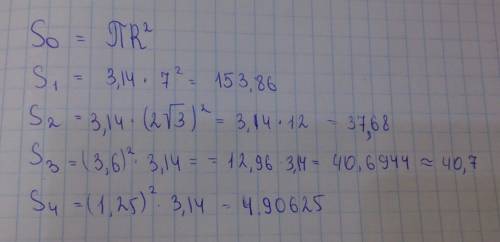 S₀ = πR²
S₁ = 3,14 · 7² = 153,86
S₂ = 3,14 · (2√3)² = 3,14 · 12 = 37,68
S₃ = (3,6)² · 3,14 = = 12,96 · 3,14 = 40,6944 ≈ 40,7
S₄ = (1,25)² · 3,14 = 4.90625